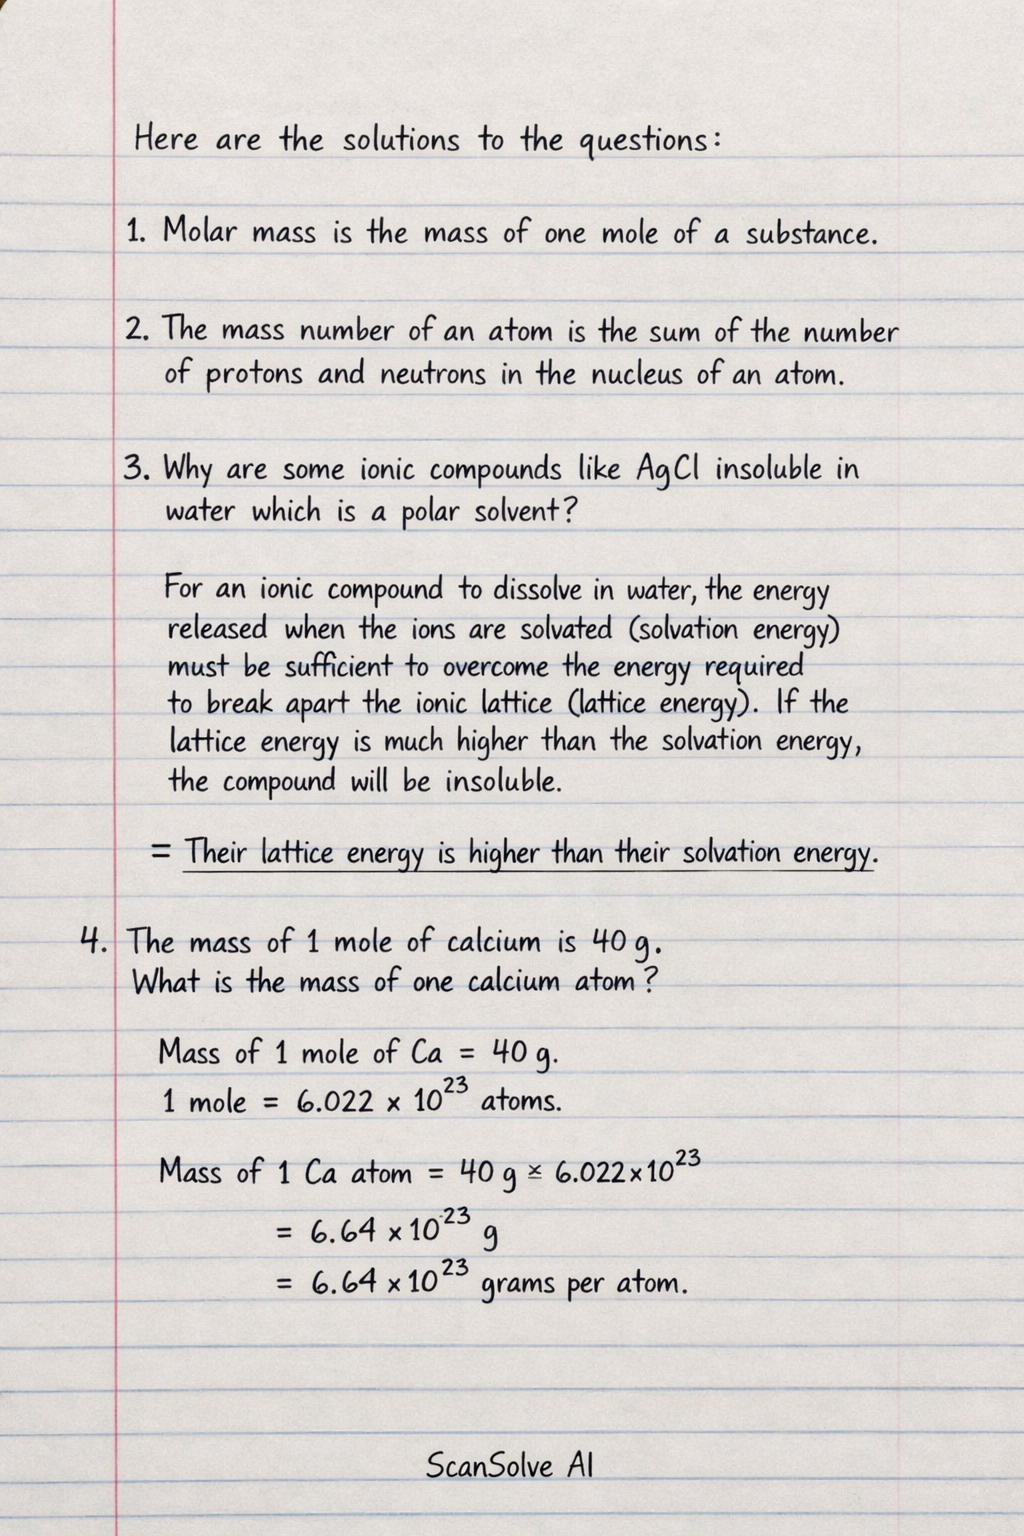 Here are the solutions to the questions:
1. Molar mass is the mass of one mole of a substance.
2. The mass number of an atom is the sum of the number
of protons and neutrons in the nucleus of an atom.
3. Why are some ionic compounds like AgCl insoluble in
water which is a polar solvent?
For an ionic compound to dissolve in water, the energy
released when the ions are solvated (solvation energy)
must be sufficient to overcome the energy required
to break apart the ionic lattice (lattice energy). If the
lattice energy is much higher than the solvation energy,
the compound will be insoluble.
= Their lattice energy is higher than their solvation energy.
4. The mass of 1 mole of calcium is 40 g.
What is the mass of one calcium atom?
Mass of 1 mole of Ca = 40 g.
1 mole = 6.022 × 10²³ atoms.
Mass of 1 Ca atom = 40 g × 6.022×10²³
= 6.64 ×10⁻²³ g
= 6.64 ×10²³ grams per atom.
ScanSolve AI